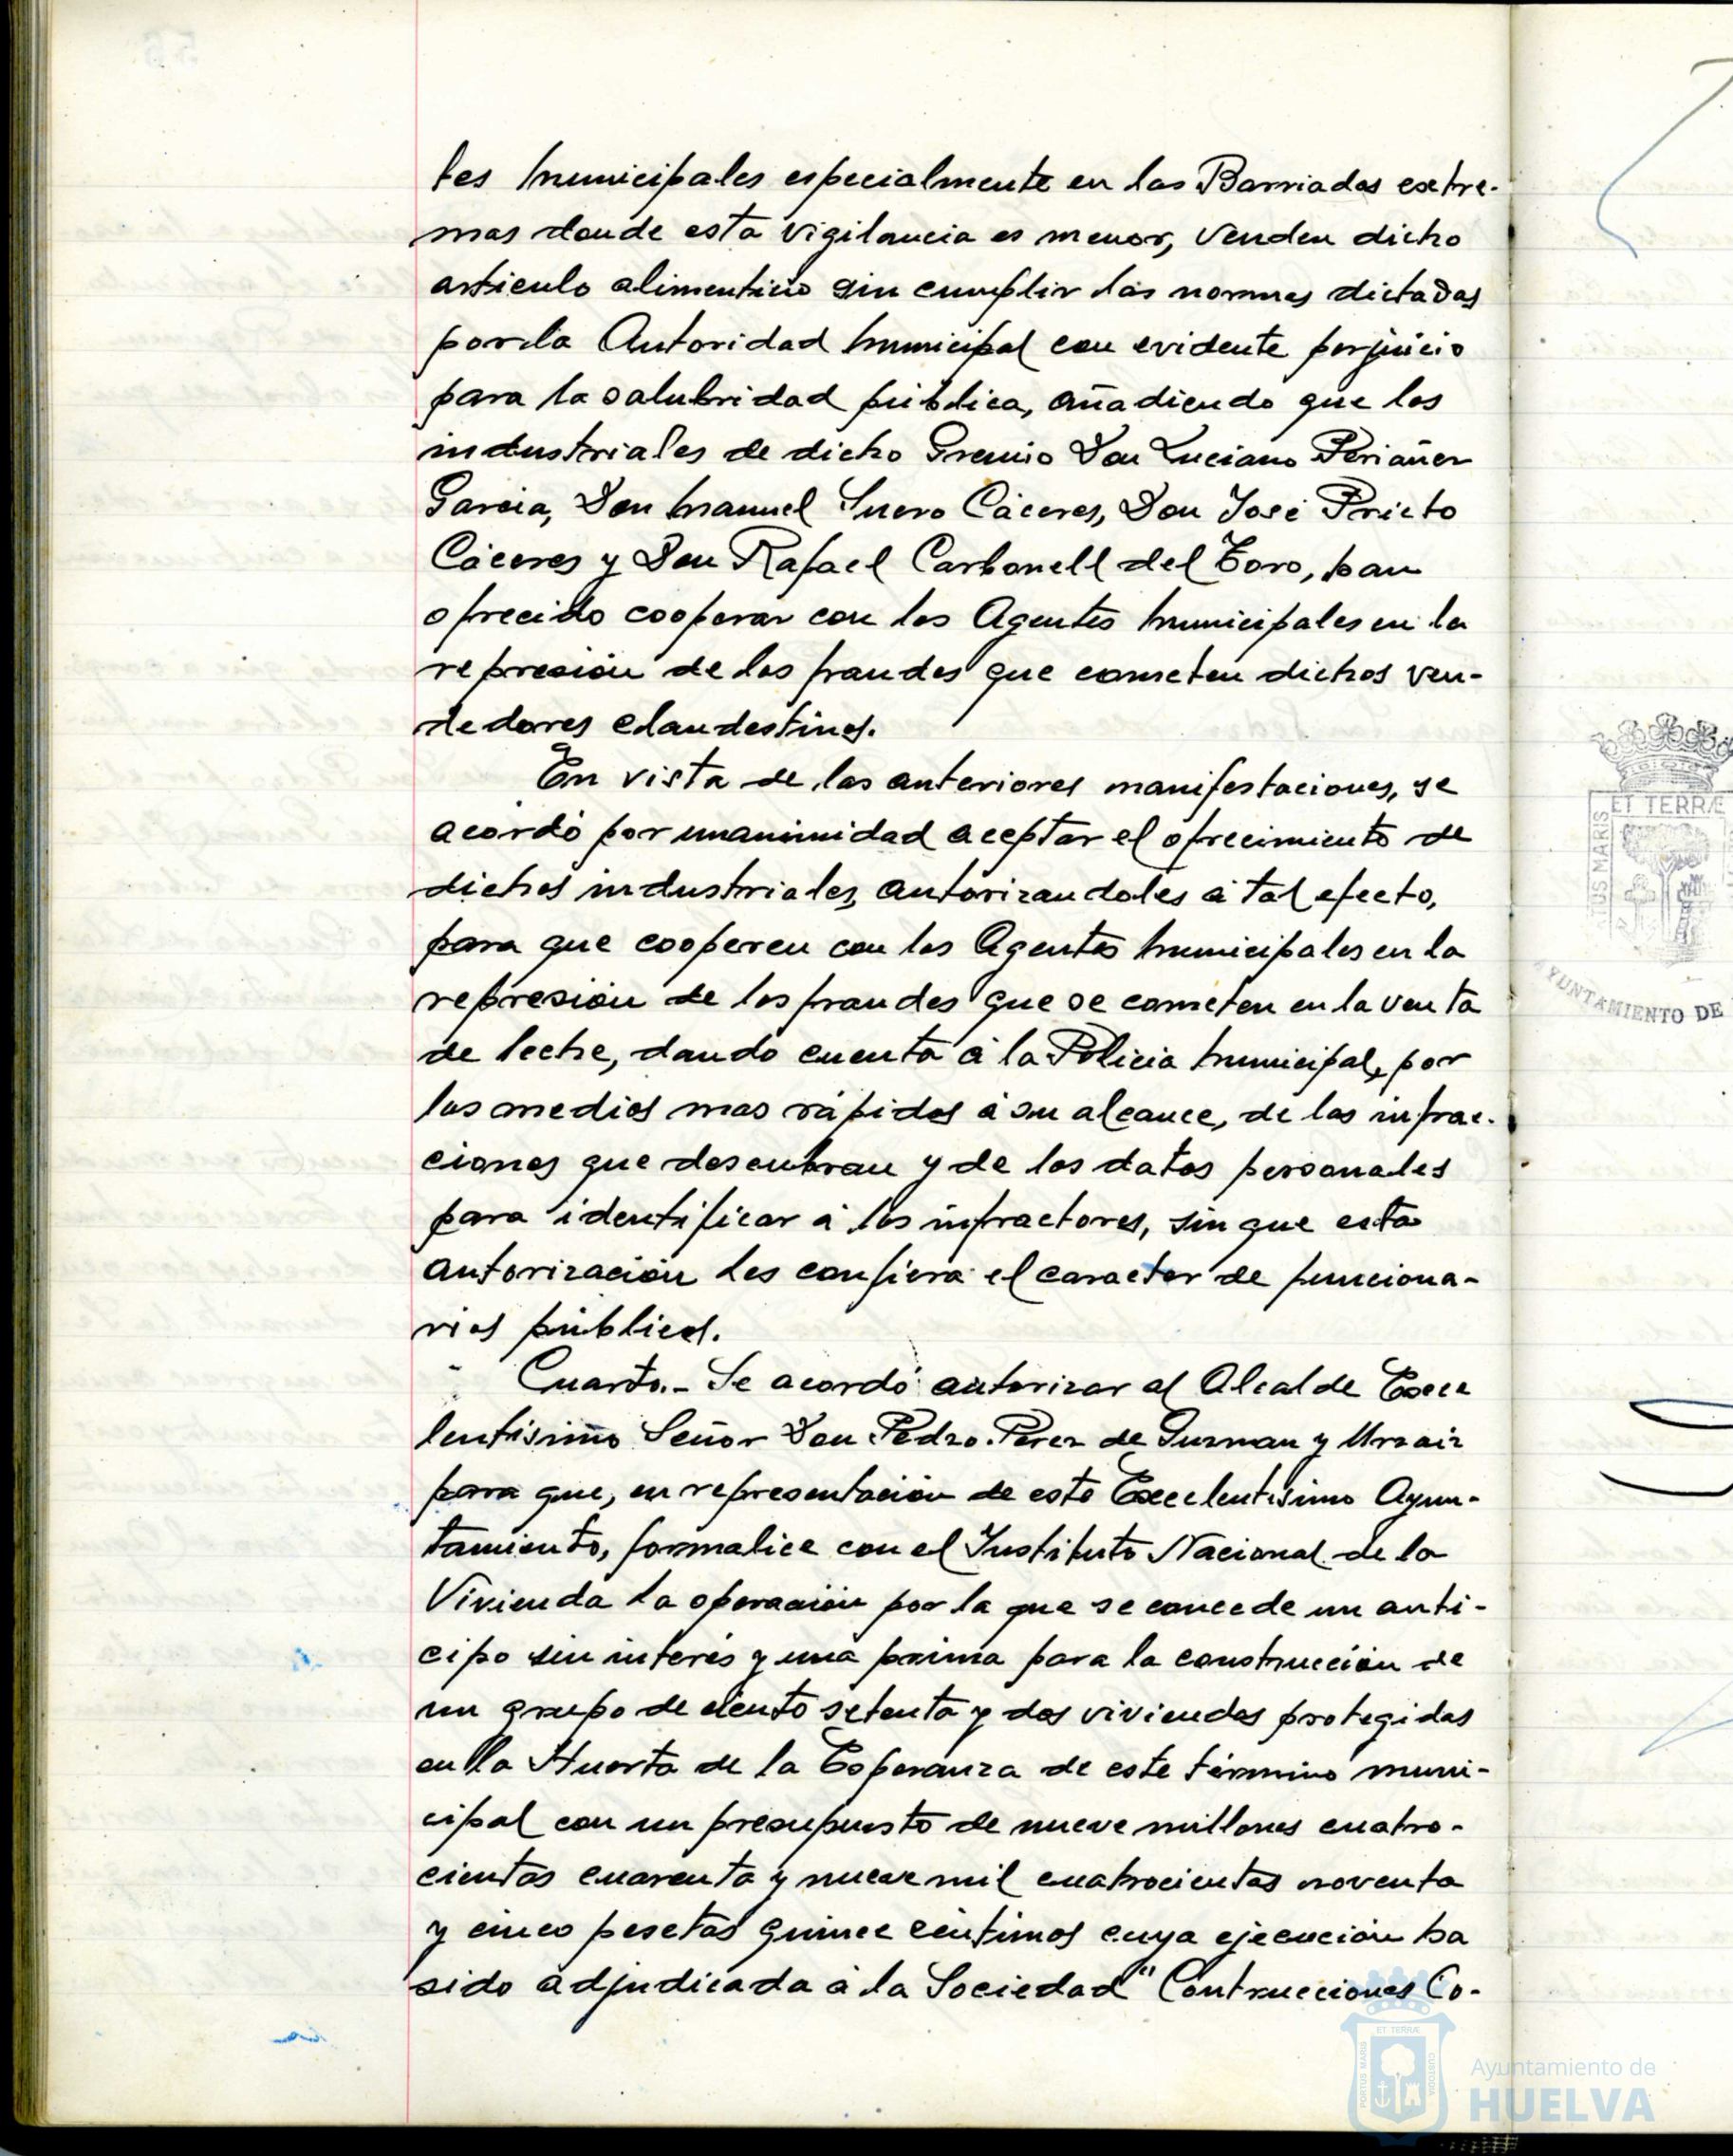 tes municipales especialmente en las Barriadas extre-
mas donde esta vigilancia es menor, venden dicho
articulo alimenticio sin cumplir las normas dictadas
por la Autoridad municipal con evidente perjuicio
para la salubridad pública, añadiendo que los
industriales de dicho Gremio Don Luciano Periañez
Garcia, Don Manuel Suero Cáceres, Don José Prieto
Cáceres y Don Rafael Carbonell del Toro, han
ofrecido cooperar con los Agentes municipales en la
represión de los fraudes que cometen dichos ven-
dedores clandestinos.
En vista de las anteriores manifestaciones, se
acordó por unanimidad aceptar el ofrecimiento de
dichos industriales, autorizandoles á tal efecto,
para que cooperen con los Agentes municipales en la
represión de los fraudes que se cometen en la venta
de leche, dando cuenta á la Policia municipal, por
los medios mas rápidos á su alcance, de las infrac-
ciones que descubran y de los datos personales
para identificar á los infractores, sin que esta
autorización les confiera el caracter de funciona-
rios públicos.
Cuarto.- Se acordó autorizar al Alcalde Exce
lentísimo Señor Don Pedro Perez de Guzman y Urzaiz
para que, en representación de este Excelentísimo Ayun-
tamiento, formalice con el Instituto Nacional de la
Vivienda la operación por la que se concede un anti-
cipo sin interés y una prima para la construcción de
un grupo de ciento setenta y dos viviendas protegidas
en la Huerta de la Esperanza de este término muni-
cipal con un presupuesto de nueve millones cuatro-
cientas cuarenta y nueve mil cuatrocientas noventa
y cinco pesetas quince céntimos cuya ejecución ha
sido adjudicada á la Sociedad "Contrucciones Co-
ET TERRÆ
TUS MARIS
YUNTAMIENTO DE
ET TERRÆ
PORTUS MARIS
CUSTODIA
Ayuntamiento de
HUELVA